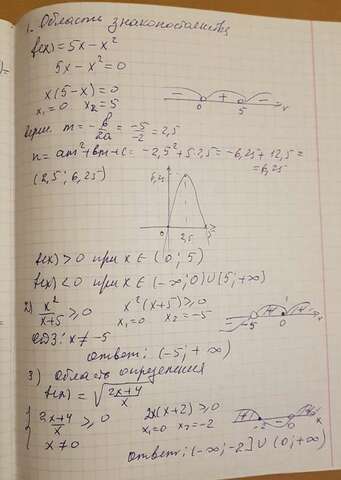 1. Область знакопостоянства
f(x) = 5x - x²
5x - x² = 0
x(5 - x) = 0
x₁ = 0 x₂ = 5
- + -
0 5 x
верш. m = -b/2a = -5/-2 = 2,5
n = am² + bm + c = -2,5² + 5·2,5 = -6,25 + 12,5 =
= 6,25
(2,5; 6,25)
6,25
0 2,5 5
f(x) > 0 при x ∈ (0; 5)
f(x) < 0 при x ∈ (-∞; 0) ∪ (5; +∞)
2) x²/(x+5) ≥ 0 x²(x+5) ≥ 0
x₁ = 0 x₂ = -5
- + +
-5 0 x
ОДЗ: x ≠ -5
ответ: (-5; +∞)
3) Область определения
f(x) = √((2x+4)/x)
{ (2x+4)/x ≥ 0 2x(x+2) ≥ 0
x ≠ 0 x₁ = 0 x₂ = -2
+ - +
-2 0 x
ответ: (-∞; -2] ∪ (0; +∞)